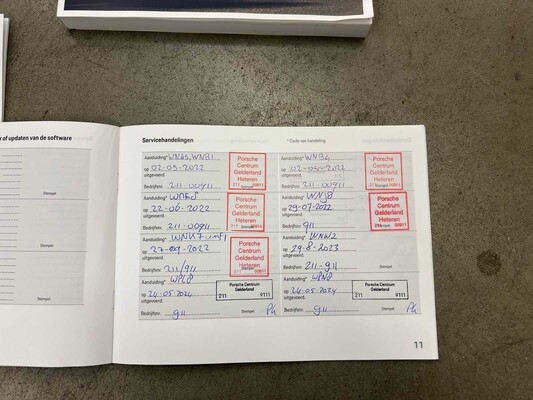 r of updaten van de software
Stempel
Stempel
Stempel
Servicehandelingen
* Code van handeling
Aanduiding* WNA5, WNB1
op 02-05-2022
uitgevoerd.
Bedrijfsnr. 211-00911
Stempel
Porsche
Centrum
Gelderland
Heteren
211 00911
Aanduiding* WNB4
op 02-05-2022
uitgevoerd.
Bedrijfsnr. 211-00911
Stempel
Porsche
Centrum
Gelderland
Heteren
211 00911
Aanduiding*
op 22-06-2022
uitgevoerd.
Bedrijfsnr. 211-00911
Stempel
Porsche
Centrum
Gelderland
Heteren
211 00911
Aanduiding* WNJ8
op 29-07-2022
uitgevoerd.
Bedrijfsnr. 911
Stempel
Porsche
Centrum
Gelderland
Heteren
211 00911
Aanduiding*
op
uitgevoerd.
Bedrijfsnr. 211/911
Stempel
Porsche
Centrum
Gelderland
Heteren
211 00911
Aanduiding* WNW2
op 29-8-2023
uitgevoerd.
Bedrijfsnr. 211-911
Stempel
Porsche
Centrum
Gelderland
Heteren
211 00911
Aanduiding*
op 24-05-2024
uitgevoerd.
Bedrijfsnr. 911
Stempel
Porsche Centrum
Gelderland
211 9111
Aanduiding*
op 24-05-2024
uitgevoerd.
Bedrijfsnr. 911
Stempel
Porsche Centrum
Gelderland
211 9111
11